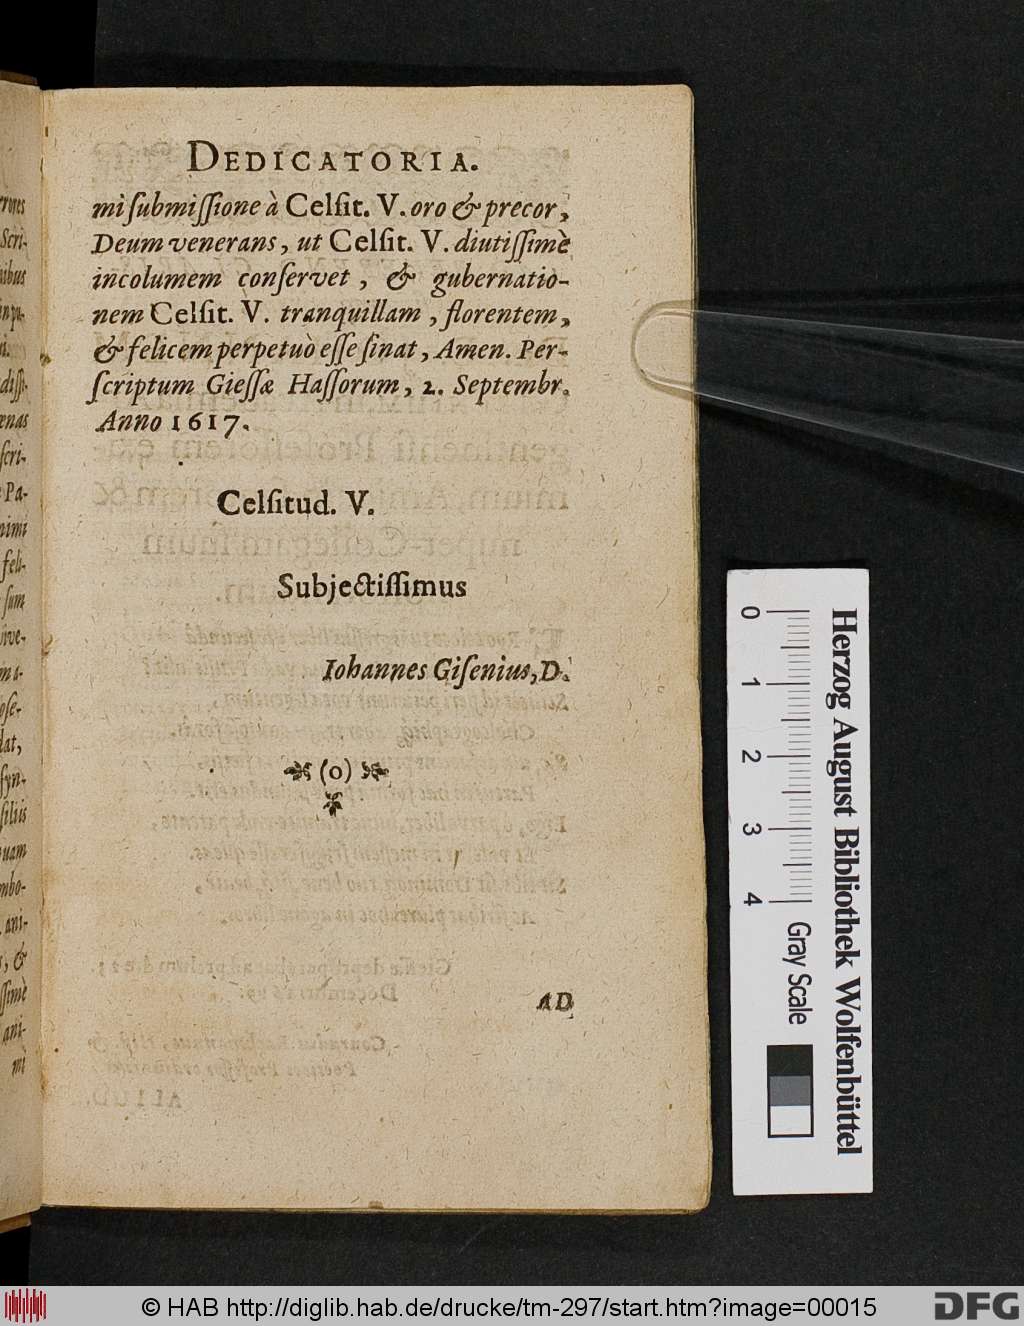 DEDICATORIA.
mi ſubmiſſione à Celſit. V. oro & precor,
Deum venerans, ut Celſit. V. diutiſſimè
incolumem conſervet, & gubernatio-
nem Celſit. V. tranquillam, florentem,
& felicem perpetuò eſſe ſinat, Amen. Per-
ſcriptum Gieſſæ Haſſorum, 2. Septembr.
Anno 1617.
Celſitud. V.
Subjectiſſimus
Iohannes Giſenius, D.
(o)
AD
Scri-
di.
ſcri-
Pa-
nimi
feli-
ſum
vive-
dat,
ſyn-
ſiliis
quam
ani-
&
ani-
mi
0 1 2 3 4
Gray Scale
Herzog August Bibliothek Wolfenbüttel
© HAB http://diglib.hab.de/drucke/tm-297/start.htm?image=00015
DFG